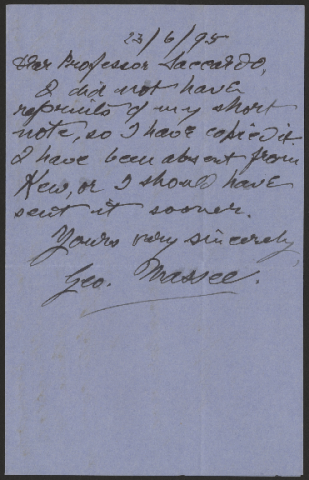 23/6/95
Dear Professor Saccardo,
I did not have
reprints of my short
note, so I have copied it.
I have been absent from
Kew, or I should have
sent it sooner.
Yours very sincerely,
Geo. Massee.